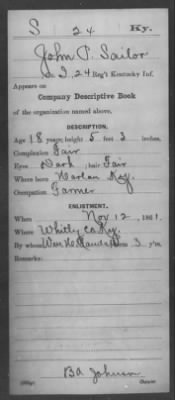 S 24 Ky.
John P. Sailor
Co. I, 24 Reg't Kentucky Inf.
Appears on
Company Descriptive Book
of the organization named above.
DESCRIPTION.
Age 18 years; 5 feet 3 inches.
Complexion Fair
Eyes Dark; hair Fair
Where born Harlan Ky.
Occupation Farmer
ENLISTMENT.
When Nov 12, 1861.
Where Whitly Co Ky.
By whom Wm H term 3 y'rs.
Remarks:
Johnson
Copyist.